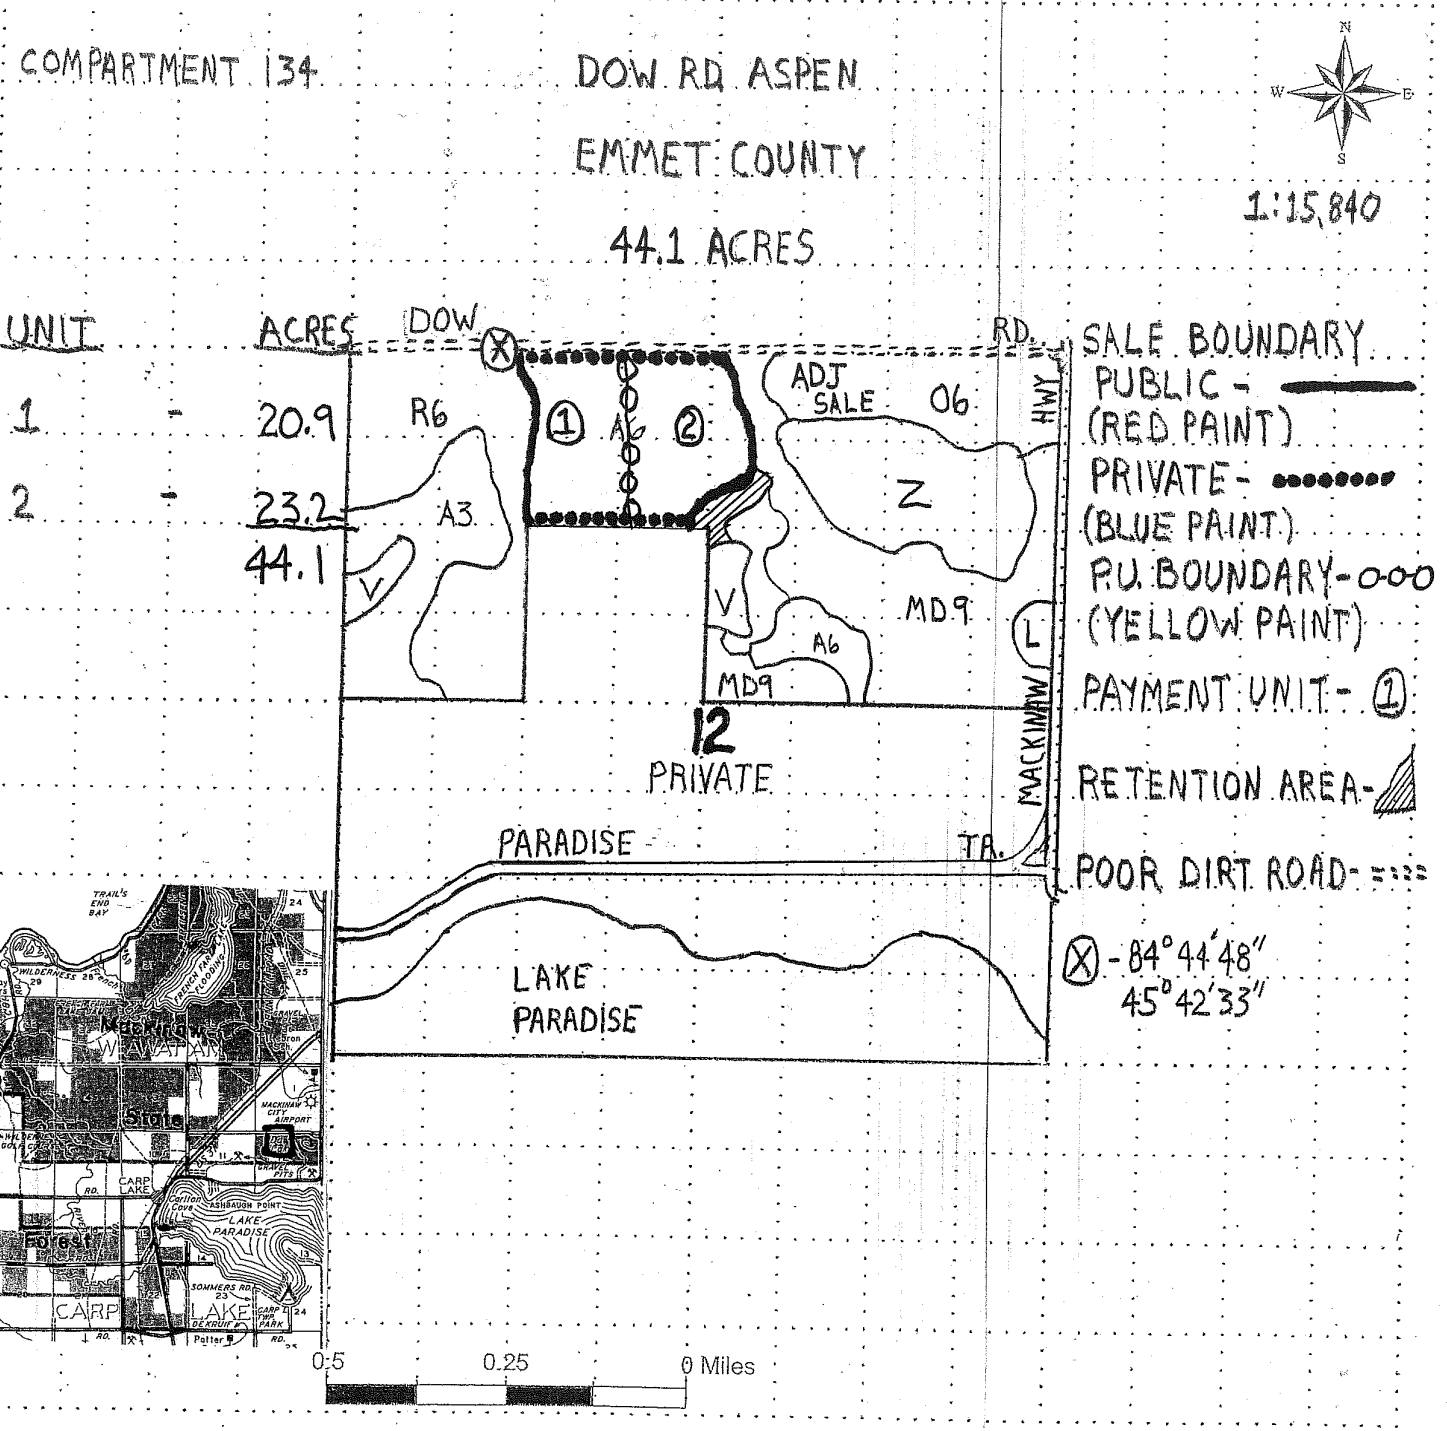 COMPARTMENT 134
DOW RD ASPEN
EMMET COUNTY
44.1 ACRES
N
W E
S
1:15,840
UNIT ACRES
1 - 20.9
2 - 23.2
44.1
DOW RD.
X
R6
1
A6
2
ADJ
SALE
06
A3
V
Z
V
MD9
A6
MD9
L
HWY
MACKINAW
12
PRIVATE
PARADISE TR.
LAKE
PARADISE
SALE BOUNDARY
PUBLIC -
(RED PAINT)
PRIVATE -
(BLUE PAINT)
P.U. BOUNDARY-
(YELLOW PAINT)
PAYMENT UNIT - 1
RETENTION AREA-
POOR DIRT ROAD-
X - 84° 44' 48"
45° 42' 33"
TRAIL'S
END
BAY
24
25
WILDERNESS
28
29
FRENCH FARM LAKE
FLOODING
Mackinaw
WAWATAM
State
MACKINAW
CITY
AIRPORT
11
GRAVEL
PITS
CARP
LAKE
RD.
Carlton
Cove
ASHBAUGH POINT
LAKE
PARADISE
Forest
13
14
SOMMERS RD.
23
22
24
CARP
LAKE
CARP L
TWP.
PARK
DEKRUIF
RD.
Potter
RD.
0.5 0.25 0 Miles